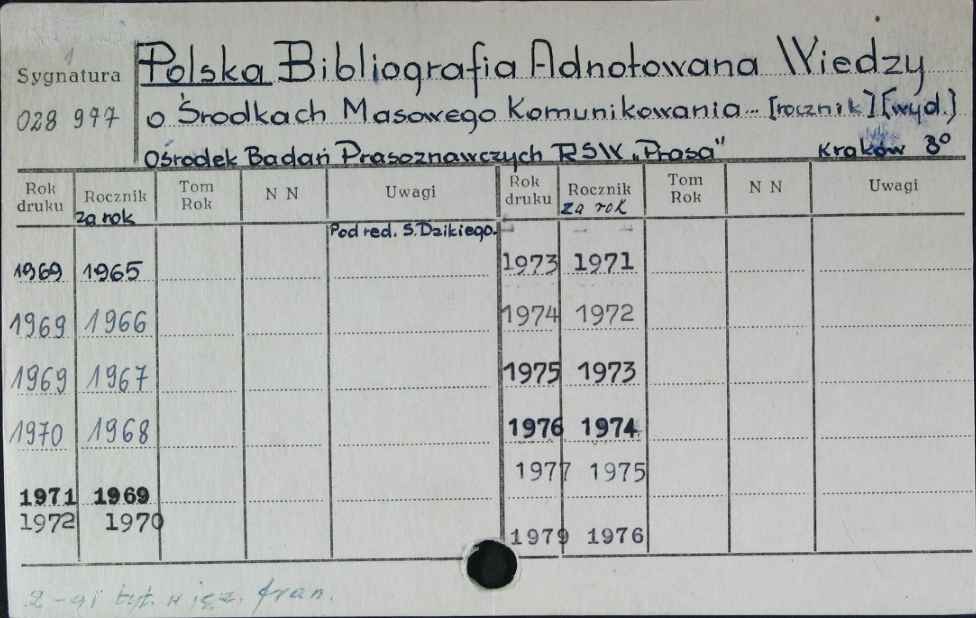 Sygnatura
028 977
Polska Bibliografia Adnotowana Wiedzy
o Środkach Masowego Komunikowania... [rocznik] [wyd.]
Ośrodek Badań Prasoznawczych RSW „Prasa" Kraków 8°
Rok druku Rocznik za rok Tom Rok N N Uwagi Rok druku Rocznik za rok Tom Rok N N Uwagi
Pod red. S. Dzikiego.
1969 1965 1973 1971
1969 1966 1974 1972
1969 1967 1975 1973
1970 1968 1976 1974
1977 1975
1971 1969
1972 1970
1979 1976
2-gi tyt. w jęz. fran.